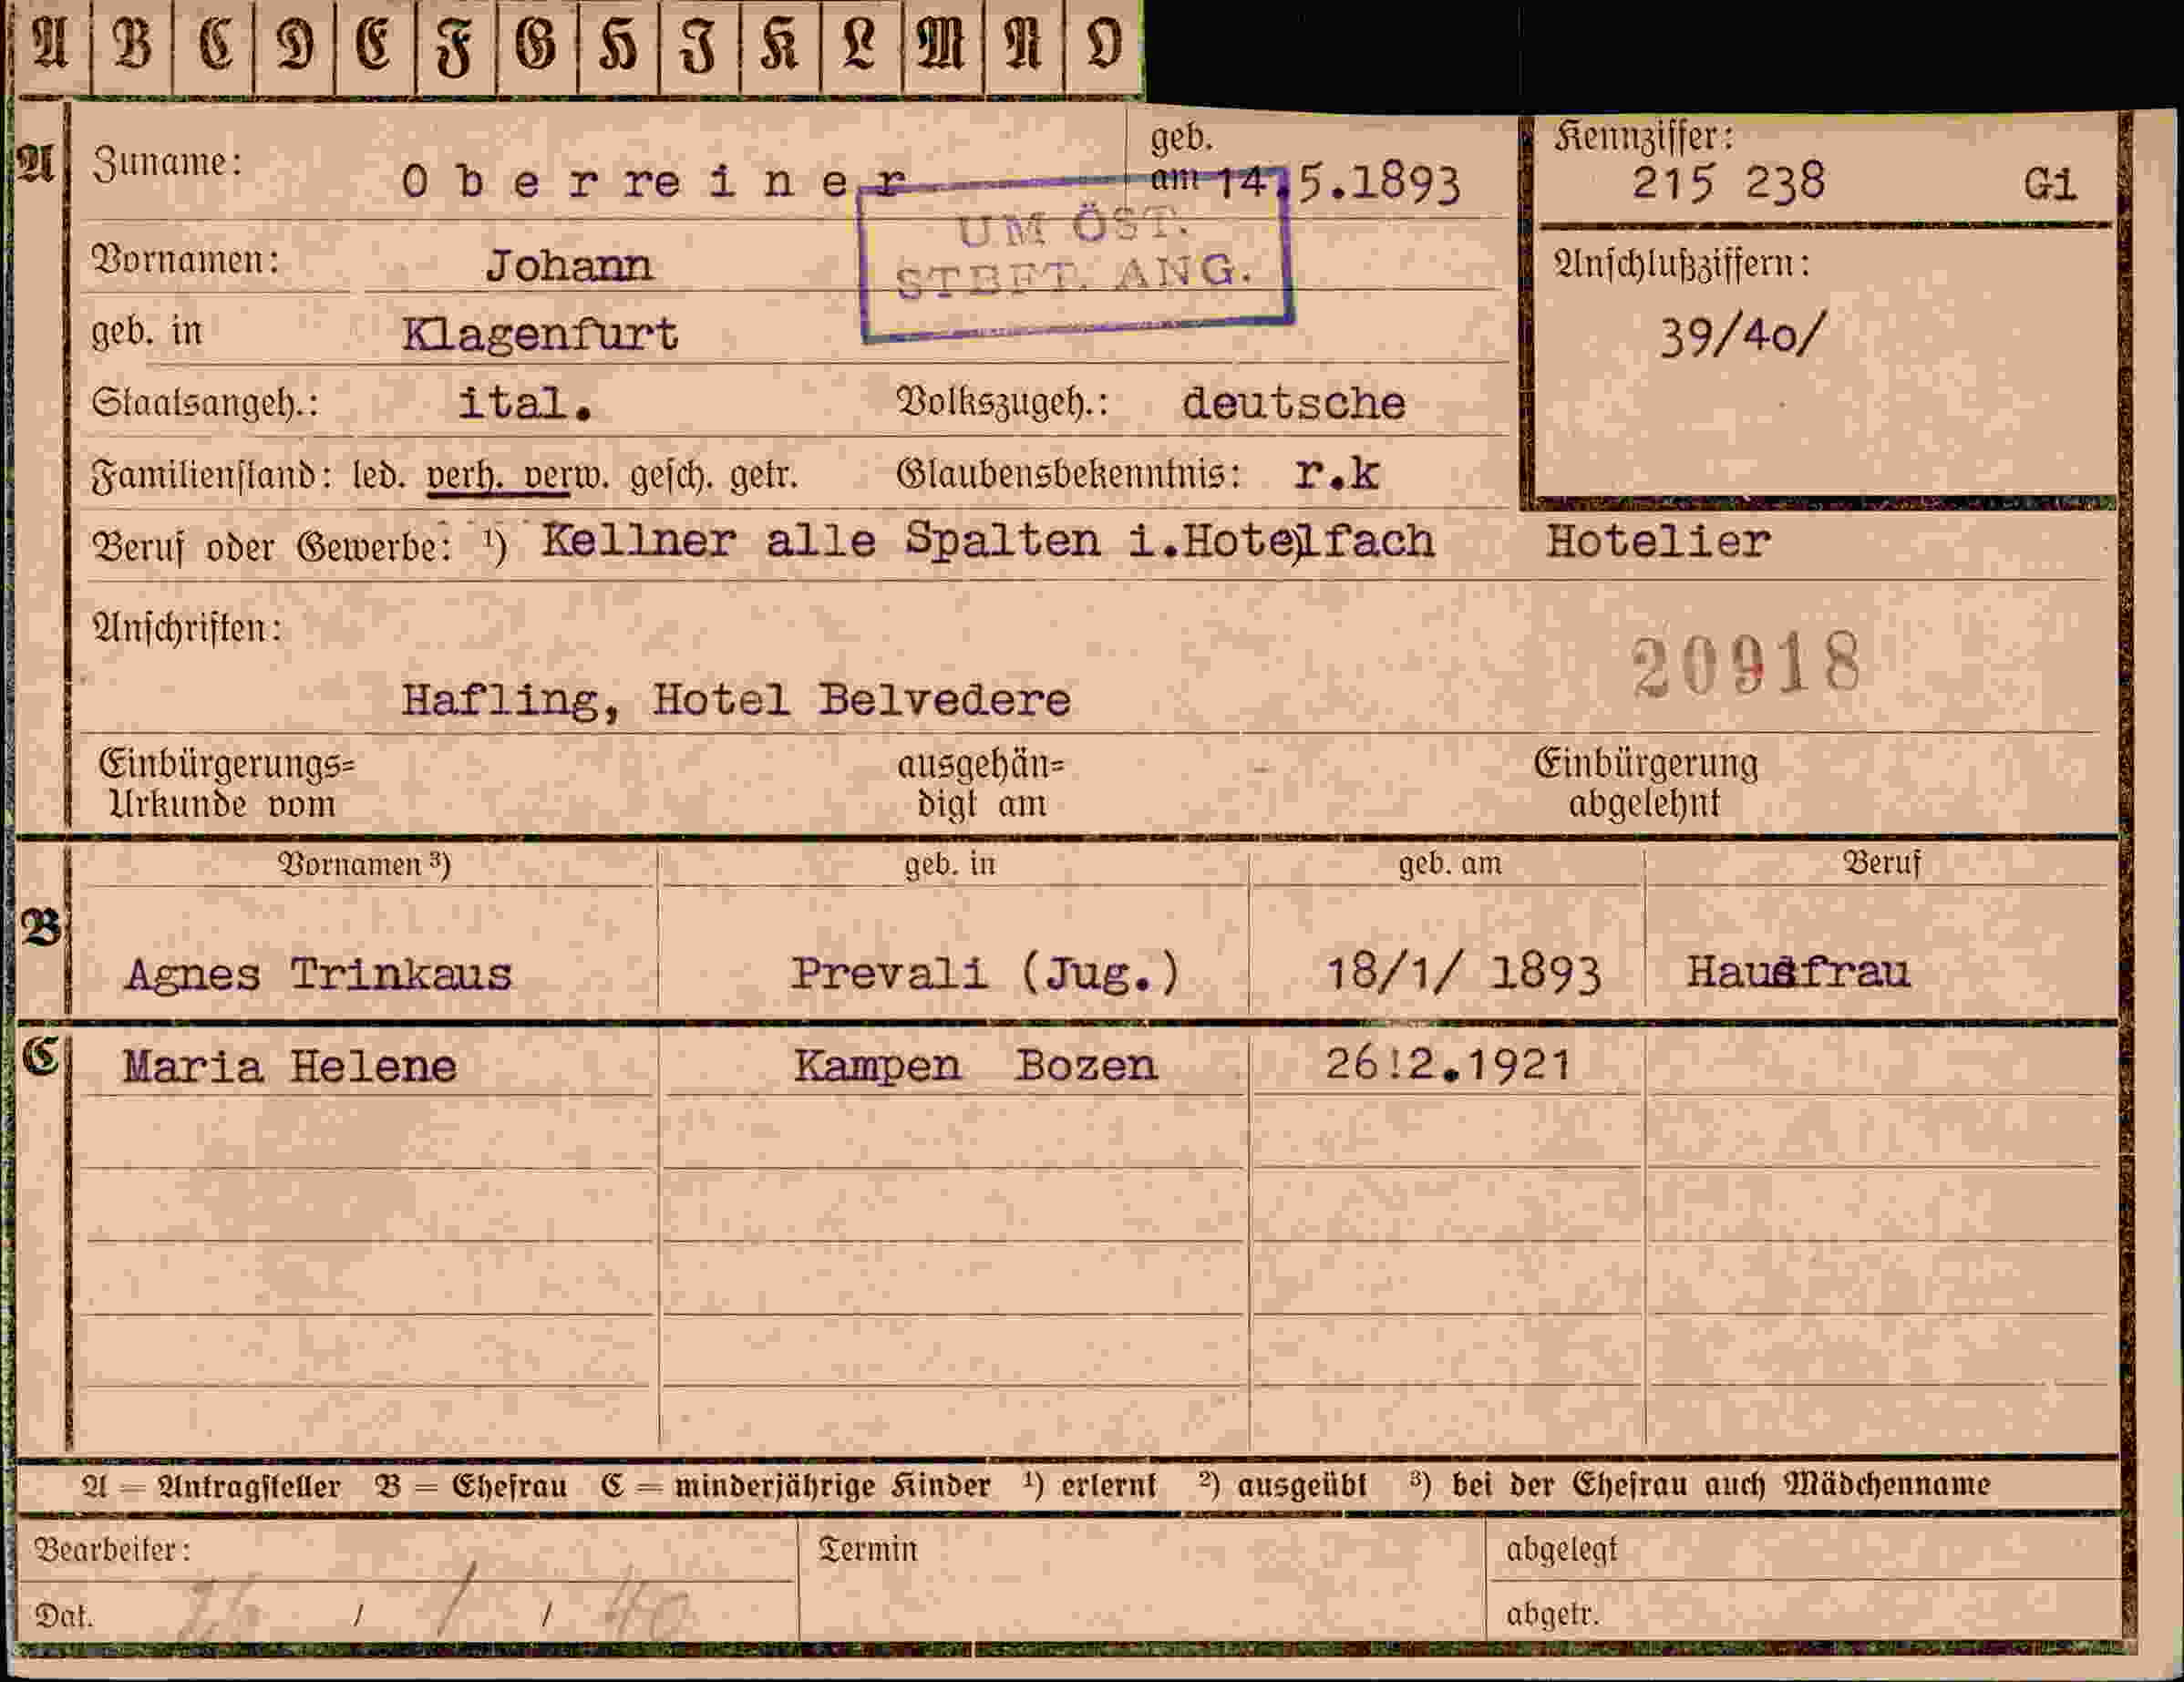 A B C D E F G H I K L M N O
A Zuname: Oberreiner geb. am 14.5.1893 Kennziffer: 215 238 Gi
UM ÖST. STBFT. ANG.
Vornamen: Johann Anschlußziffern:
geb. in Klagenfurt 39/40/
Staatsangeh.: ital. Volkszugeh.: deutsche
Familienstand: led. verh. verw. gesch. getr. Glaubensbekenntnis: r.k
Beruf oder Gewerbe: ¹) Kellner alle Spalten i.Hotelfach Hotelier
Anschriften: 20918
Hafling, Hotel Belvedere
Einbürgerungs= ausgehän= Einbürgerung
Urkunde vom digt am abgelehnt
Vornamen ³) geb. in geb. am Beruf
B Agnes Trinkaus Prevali (Jug.) 18/1/ 1893 Hausfrau
C Maria Helene Kampen Bozen 26!2.1921
A = Antragsteller B = Ehefrau C = minderjährige Kinder ¹) erlernt ²) ausgeübt ³) bei der Ehefrau auch Mädchenname
Bearbeiter: Termin abgelegt
Dat. 26 / 1 / 40 abgetr.